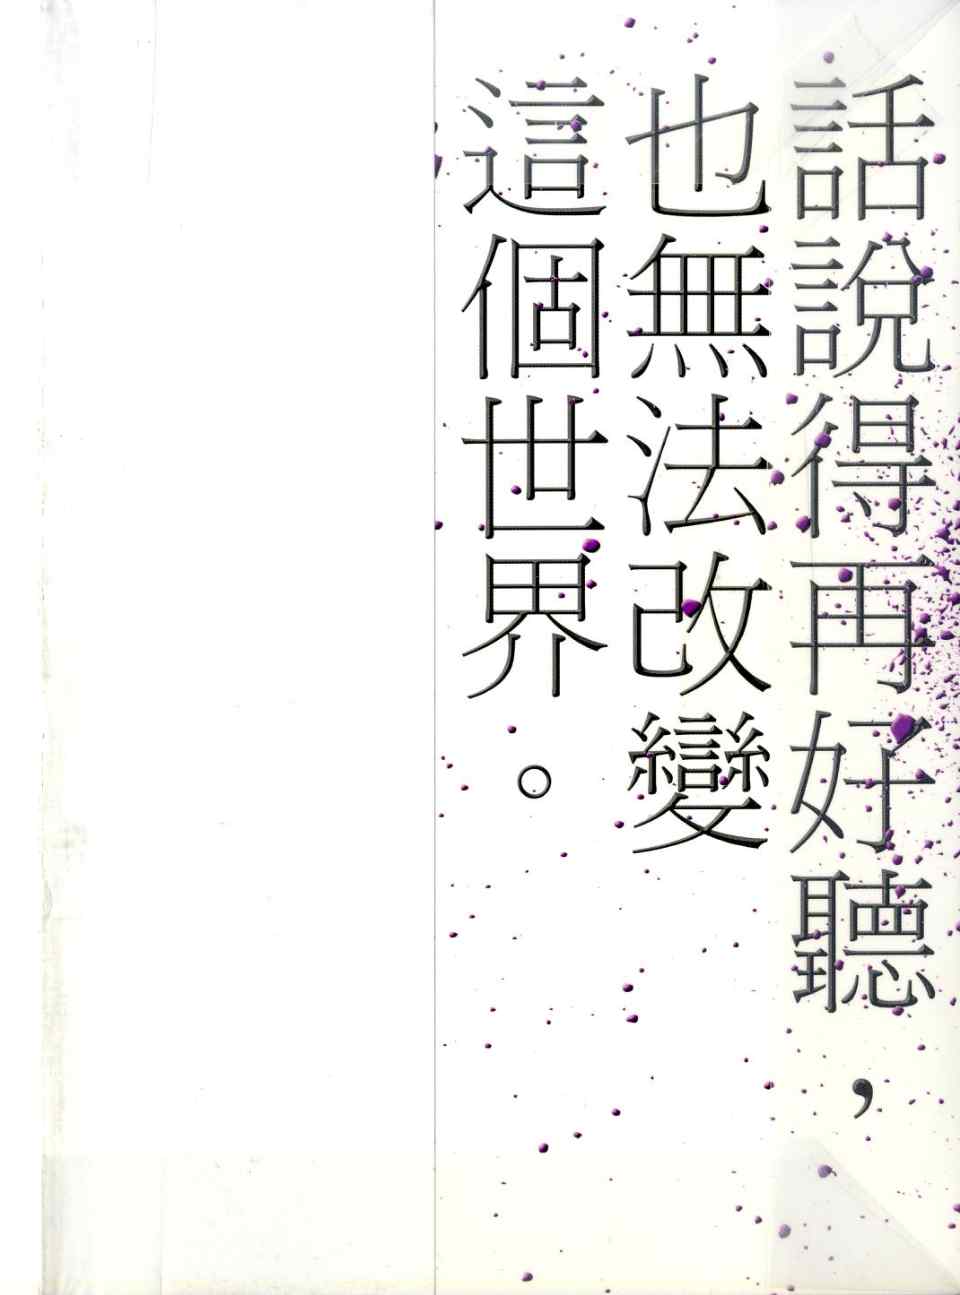 話說得再好聽，
也無法改變
這個世界。